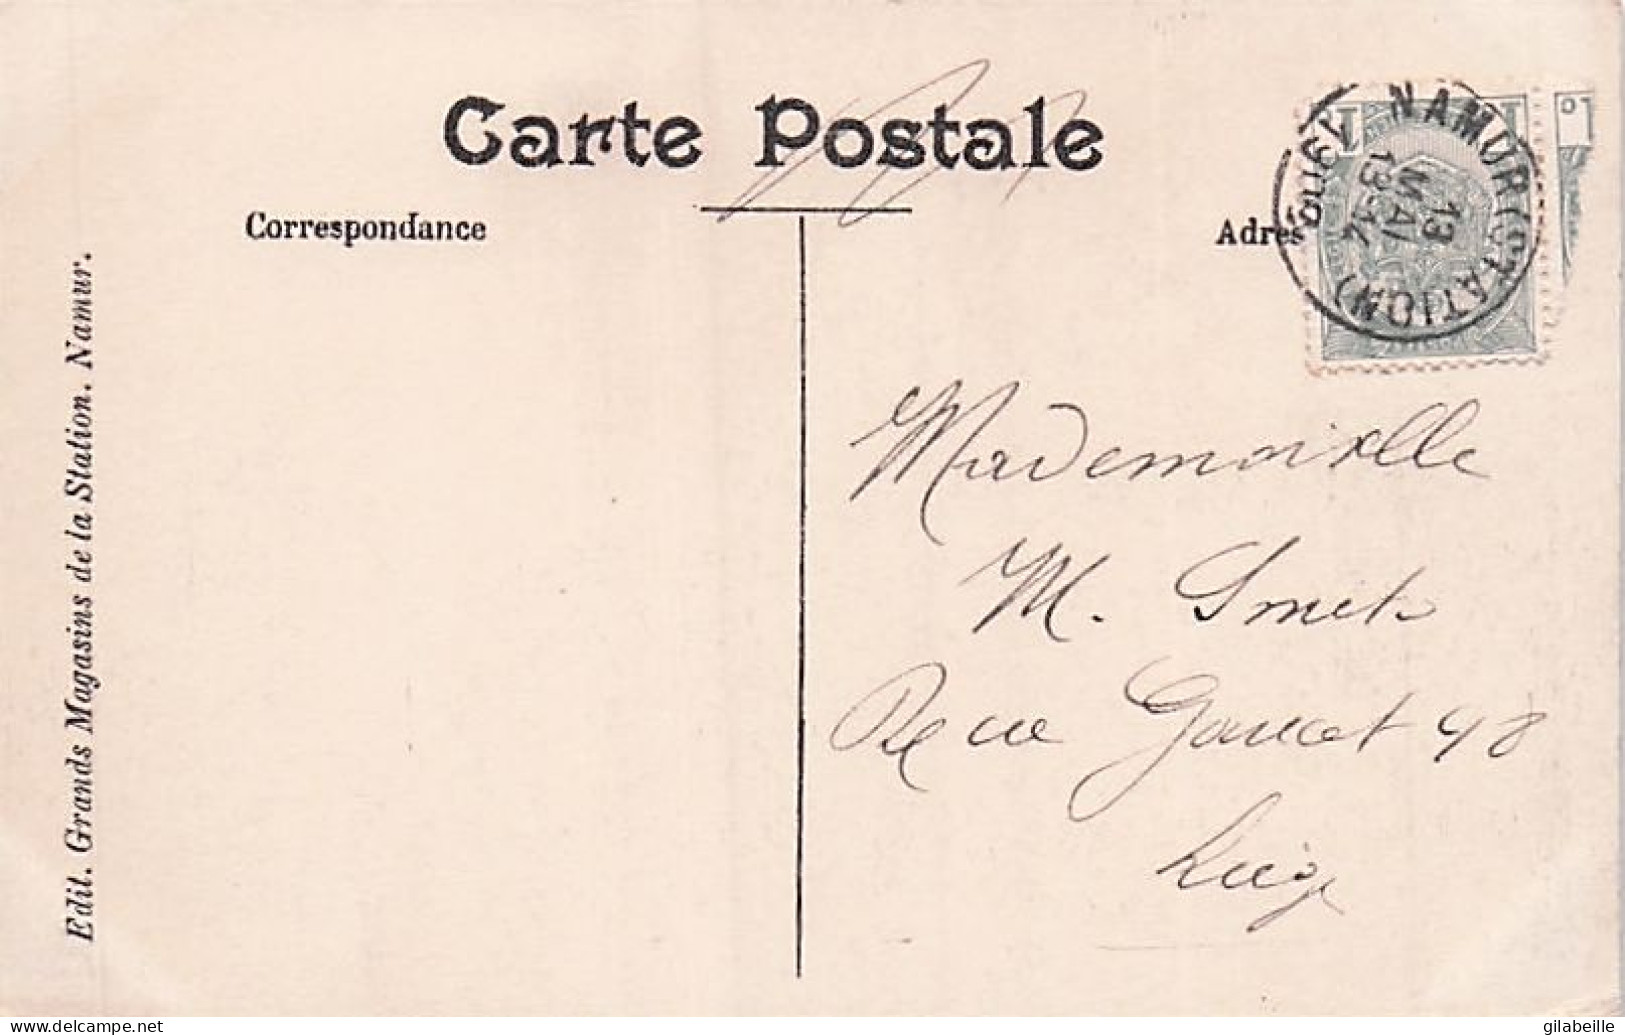 Carte Postale
Correspondance
Adres
NAMUR (STATION)
13
MAI
13-14
1 1
Edit. Grands Magasins de la Station. Namur.
Mademoiselle
M. Smets
Rue 48
Liège
www.delcampe.net
gilabeille